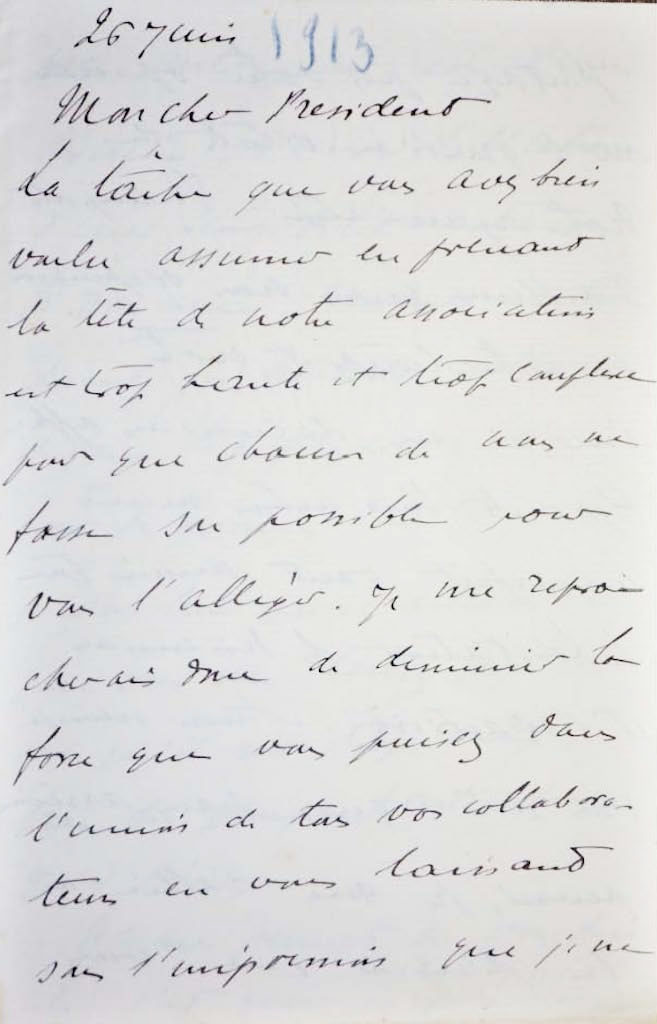 26 Juin 1913
Mon cher Président
La tâche que vous avez bien
voulu assumer en prenant
la tête de notre association
est trop lourde et trop complexe
pour que chacun de nous ne
fasse son possible pour
vous l'alléger. Je me repro-
cherais donc de diminuer la
force que vous puisez dans
l'union de tous vos collabora-
teurs en vous laissant
sous l'impression que je ne